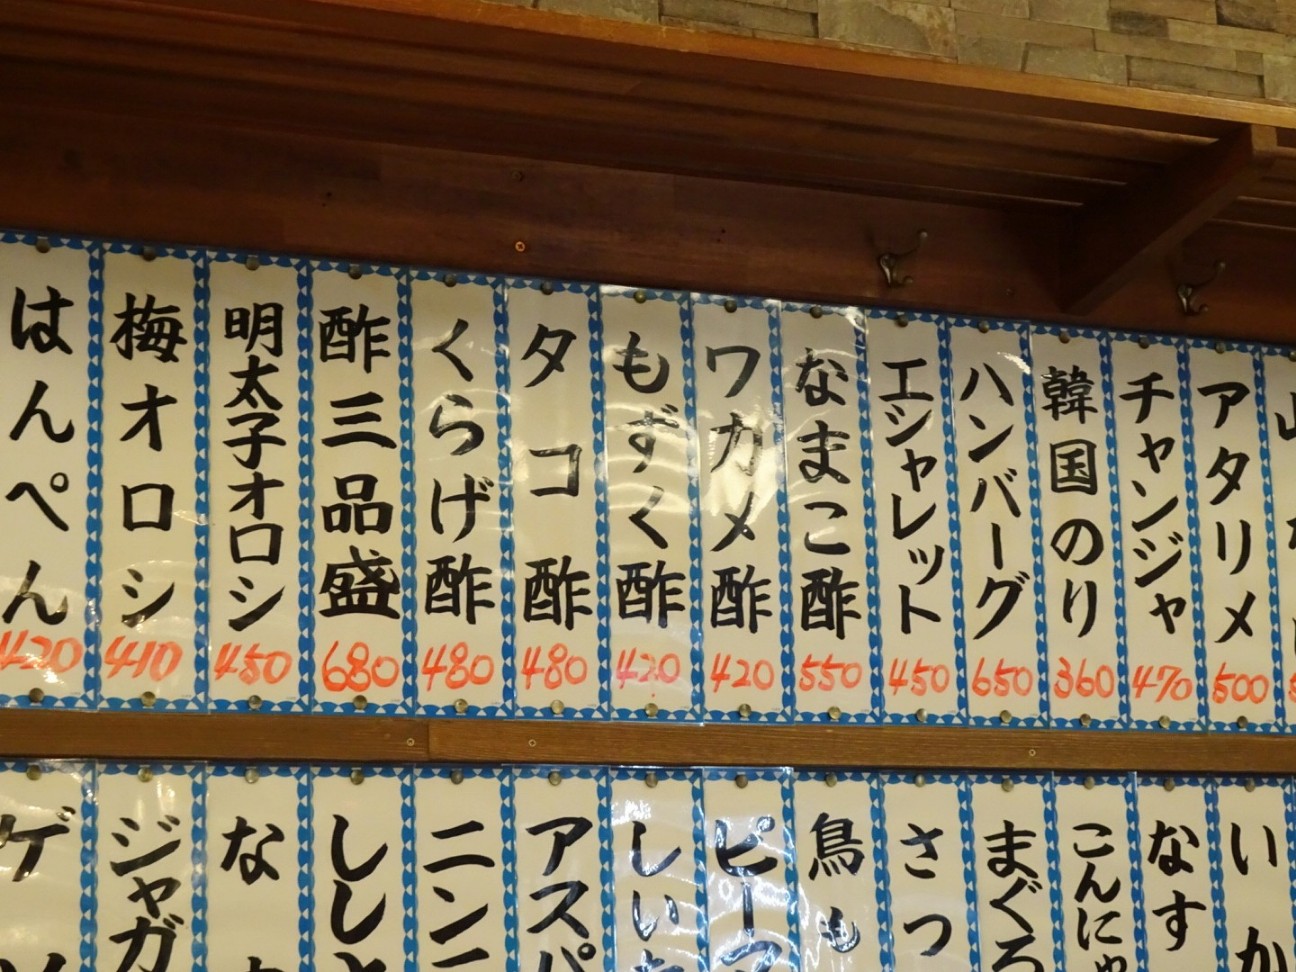 はんぺん
420
梅オロシ
410
明太子オロシ
450
酢三品盛
680
くらげ酢
480
タコ酢
480
もずく酢
420
ワカメ酢
420
なまこ酢
550
エシャレット
450
ハンバーグ
650
韓国のり
360
チャンジャ
470
アタリメ
500
ゲ
ジャガ
な
ししと
ニンニ
アスパ
しいた
ピーマ
鳥も
さつ
まぐろ
こんにゃ
なす
いか